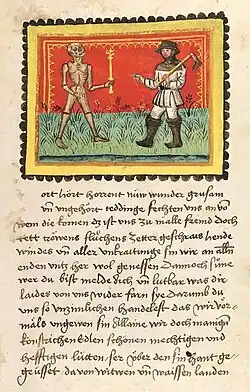 ort hört horrent nüw wunder grusam
vn̄ vngehort teddinge fechten vns an vō
wem die komen dz ist vns zu malle fremd Doch
tett tröwens flüchens Zetter geschrais hende
windes vn̄ aller vnkraitunge sin wir an alln̄
enden vntz her wol genessen Dannoch süne
wer du bist melde dich vn̄ lutbar was dir
laides von vns wider farn sye Darumb du
vns so vnzimlichen handelest das wir vor
mals vngewen sin Allaine wir doch manigen
konstrichen Edlen schönen mechtigen vnd
hefftigen lütten ser yber den hant ge
grüsset da von witwen vn̄ waissen landen